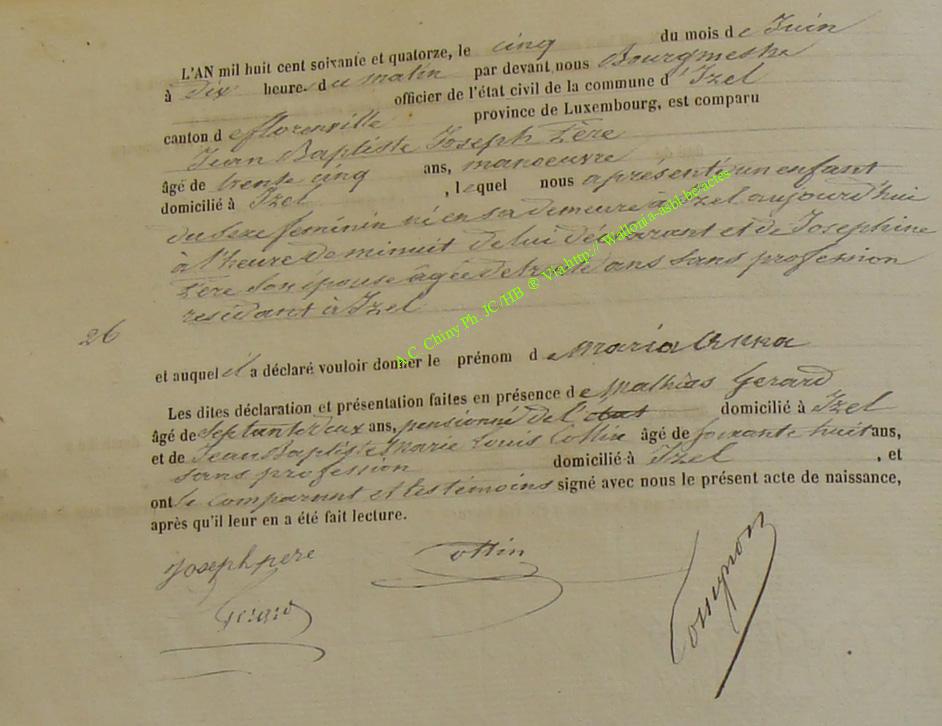 L'AN mil huit cent soixante et quatorze, le cinq du mois de Juin
à Dix heures du matin par devant nous Bourgmestre
officier de l'état civil de la commune d'Izel
canton de florenville province de Luxembourg, est comparu
Jean Baptiste Joseph Père
âgé de trente cinq ans, manoeuvre
domicilié à Izel, lequel nous a présenté un enfant
du sexe féminin né en sa demeure à Izel aujourd'hui
à l'heure de minuit de lui déclarant et de Josephine
Père son épouse âgée de trente ans sans profession
résidant à Izel
26
et auquel il a déclaré vouloir donner le prénom de Maria Anna
Les dites déclaration et présentation faites en présence de Mathias Gerard
âgé de Septante deux ans, pensionné de l'état domicilié à Izel
et de Jean Baptiste Marie Louis Collin âgé de soixante huit ans,
sans profession domicilié à Izel, et
ont le comparant et les témoins signé avec nous le présent acte de naissance,
après qu'il leur en a été fait lecture.
Joseph pere Collin
Gerard
A.C. Chiny Ph. JC/HB @ Via http://Wallonia-asbl.be/actes